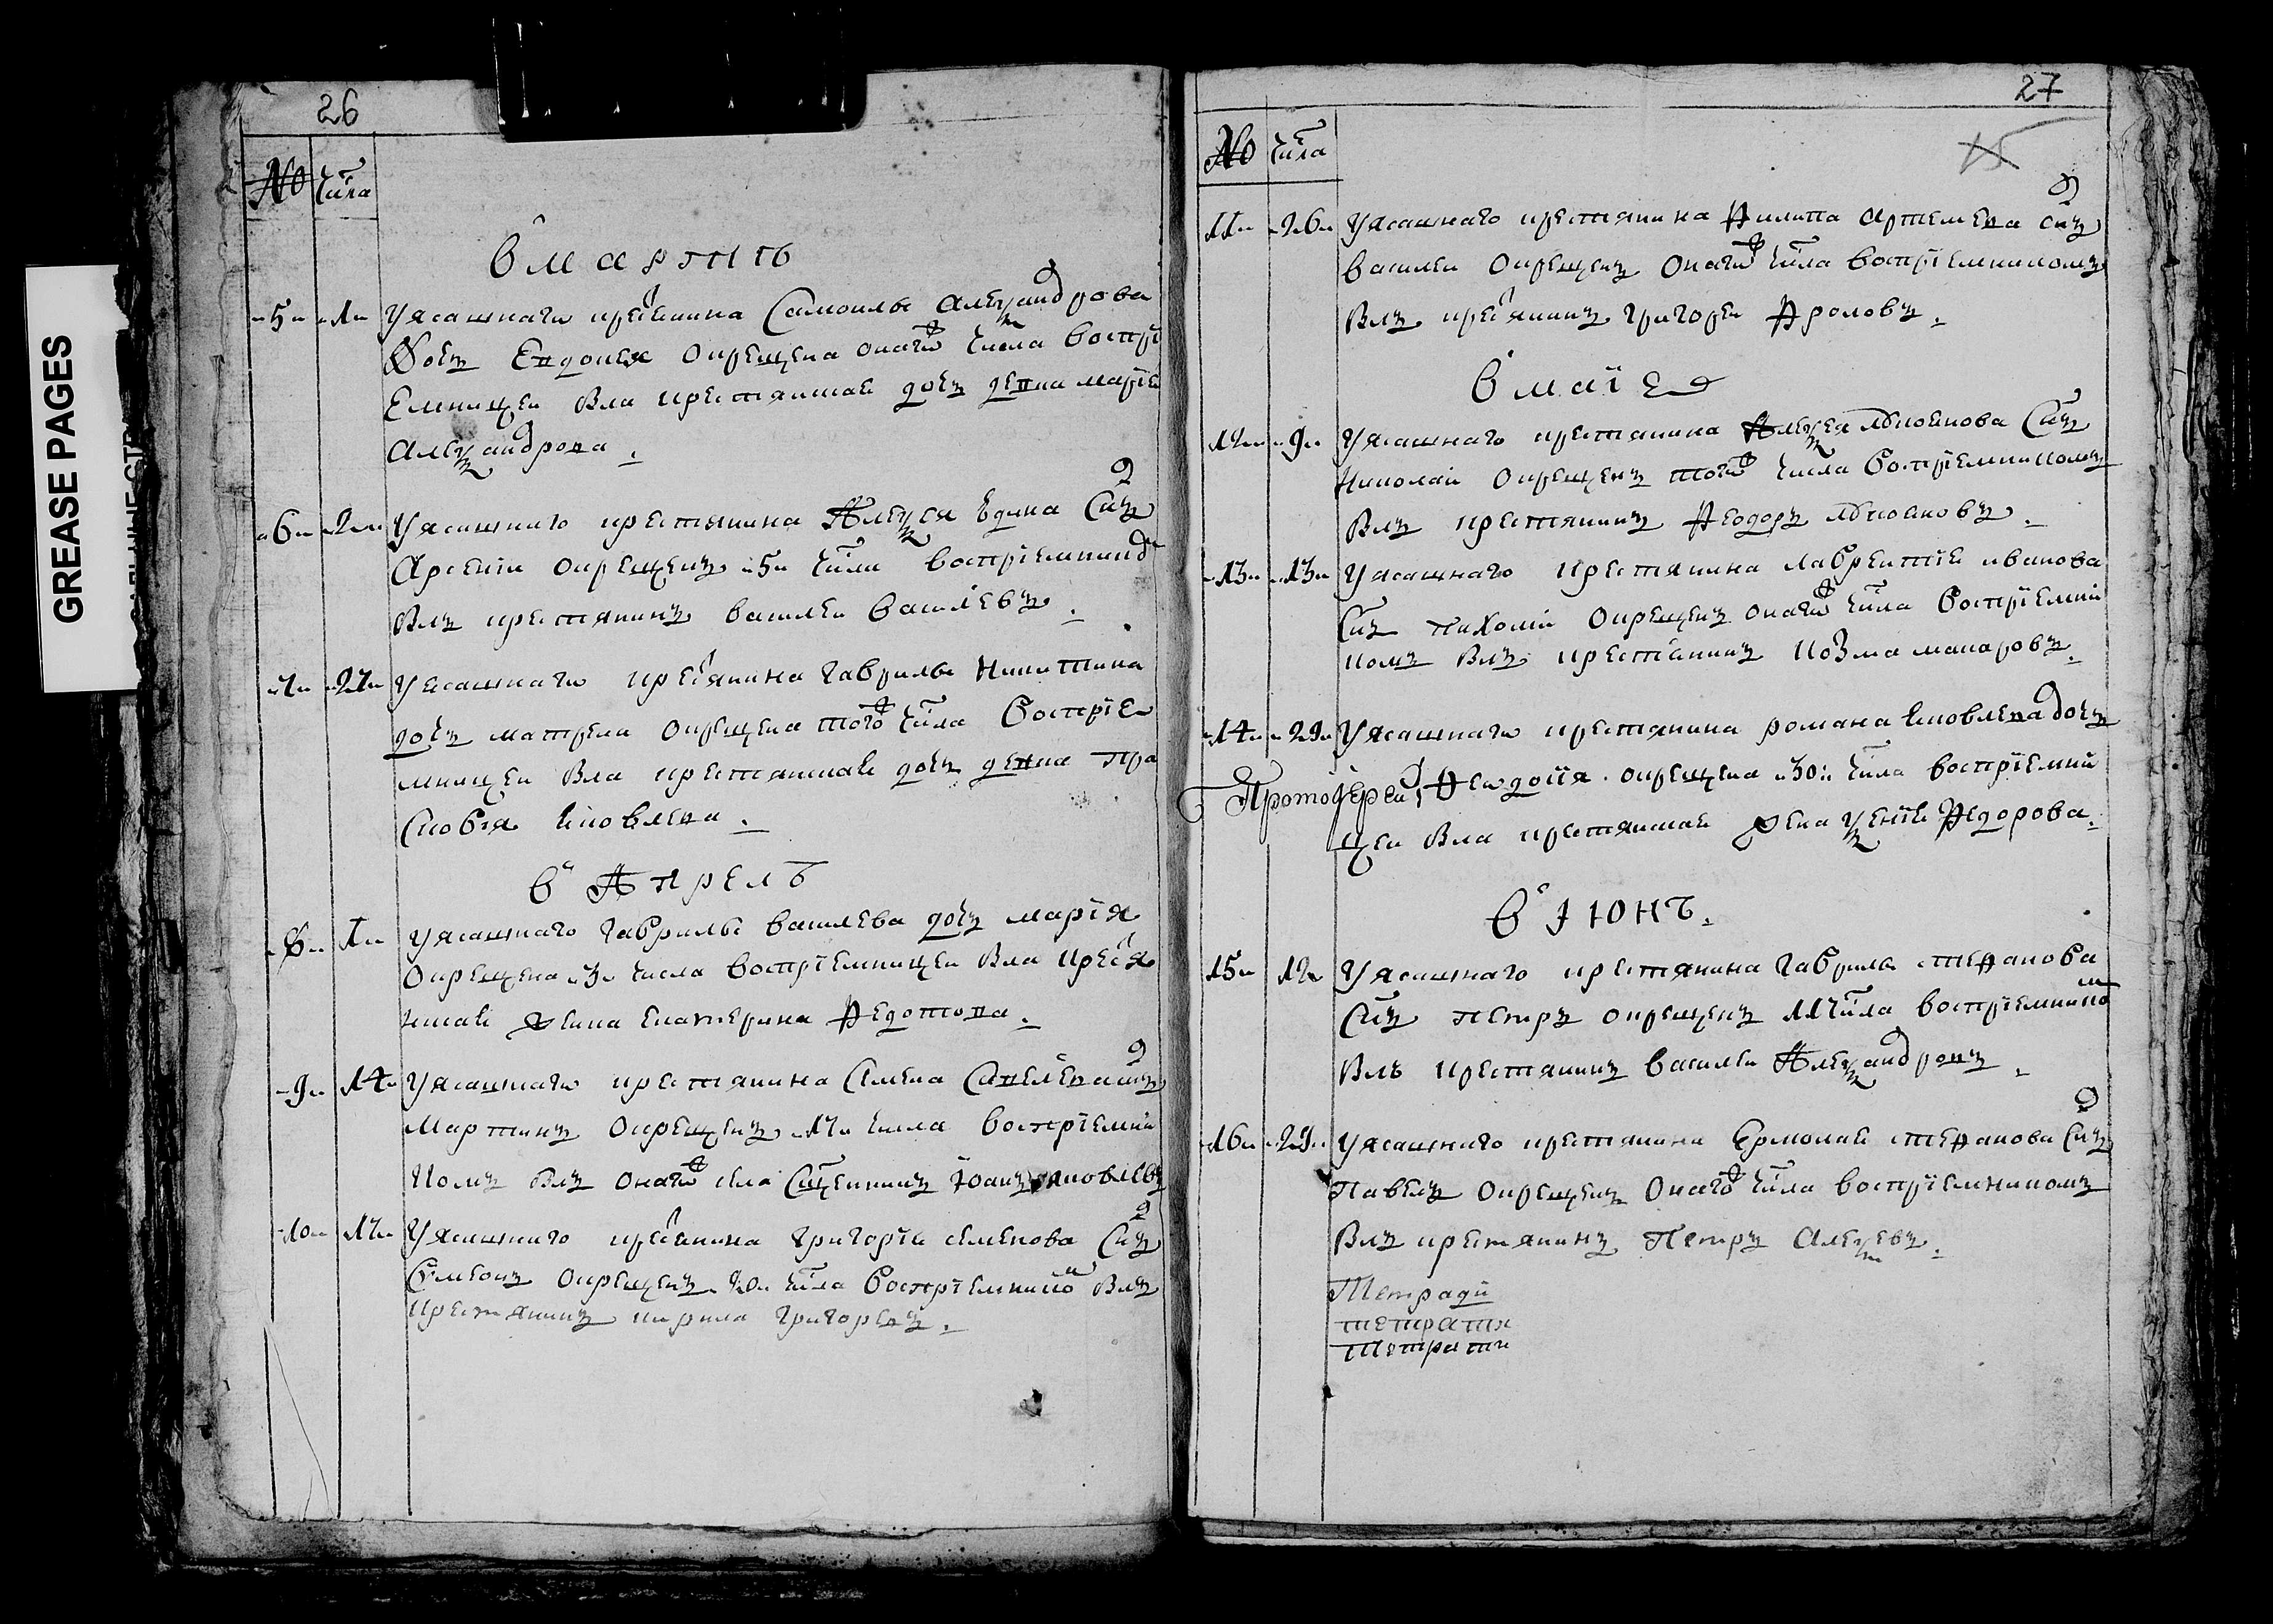 GREASE PAGES
26
№ числа
в мартѣ
5 1 У ясашнаго крестьянина Самоилы Александрова
дочь Евдокея окрещена онаго ж числа воспрі
емницеи была крестьянская дочь девка марія
Александрова.
6 2 У ясашнаго крестьянина Алексея сын
Арсении окрещенъ 5 числа воспріемником
былъ крестьянинъ василеи василіевъ.
7 27 У ясашнаго крестьянина гаврилы Никитина
дочь матрена окрещена того ж числа воспріе
мницеи была крестьянская дочь девка Пра
сковья яковлева.
в Апрелѣ
8 1 У ясашнаго гаврилы василева дочь марія
окрещена 3 числа воспріемницеи была крестья
нская жена екатерина Федотова.
9 14 У ясашнаго крестьянина Савелева сынъ
Мартинъ окрещенъ 17 числа воспріемни
комъ былъ онаго ж села Священникъ Іоаннъ яковлевъ
10 17 У ясашнаго крестьянина григорія семенова сынъ
Симеонъ окрещенъ 20 числа воспріемникомъ былъ
крестьянинъ кирила григоревъ.
27
15
№ числа
11 26 У ясашнаго крестьянина Филипа артемева сынъ
василеи окрещенъ онаго ж числа воспріемникомъ
былъ крестьянинъ григореи Фроловъ.
в маіе
12 9 У ясашнаго крестьянина Алексея сынъ
Николаи окрещенъ того ж числа воспріемникомъ
былъ крестьянинъ Феодоръ
13 13 У ясашнаго крестьянина лаврентіе иванова
сынъ пахоміи окрещенъ онаго ж числа воспріемни
комъ былъ крестьянинъ козма макаровъ.
14 29 У ясашнаго крестьянина романа яковлева дочь
Протоіереи Феодосія окрещена 30 числа воспріемни
цеи была крестьянская жена ксенія Федорова.
в Іюнѣ.
15 12 У ясашнаго крестьянина гаврилы стефанова
сынъ петръ окрещенъ числа воспріемникомъ
былъ крестьянинъ василеи Александровъ
16 29 У ясашнаго крестьянина Ермолаи стефанова сынъ
Павелъ окрещенъ онаго ж числа воспріемникомъ
былъ крестьянинъ Петръ Алексевъ.
Тетради
тетратя
Тетрати